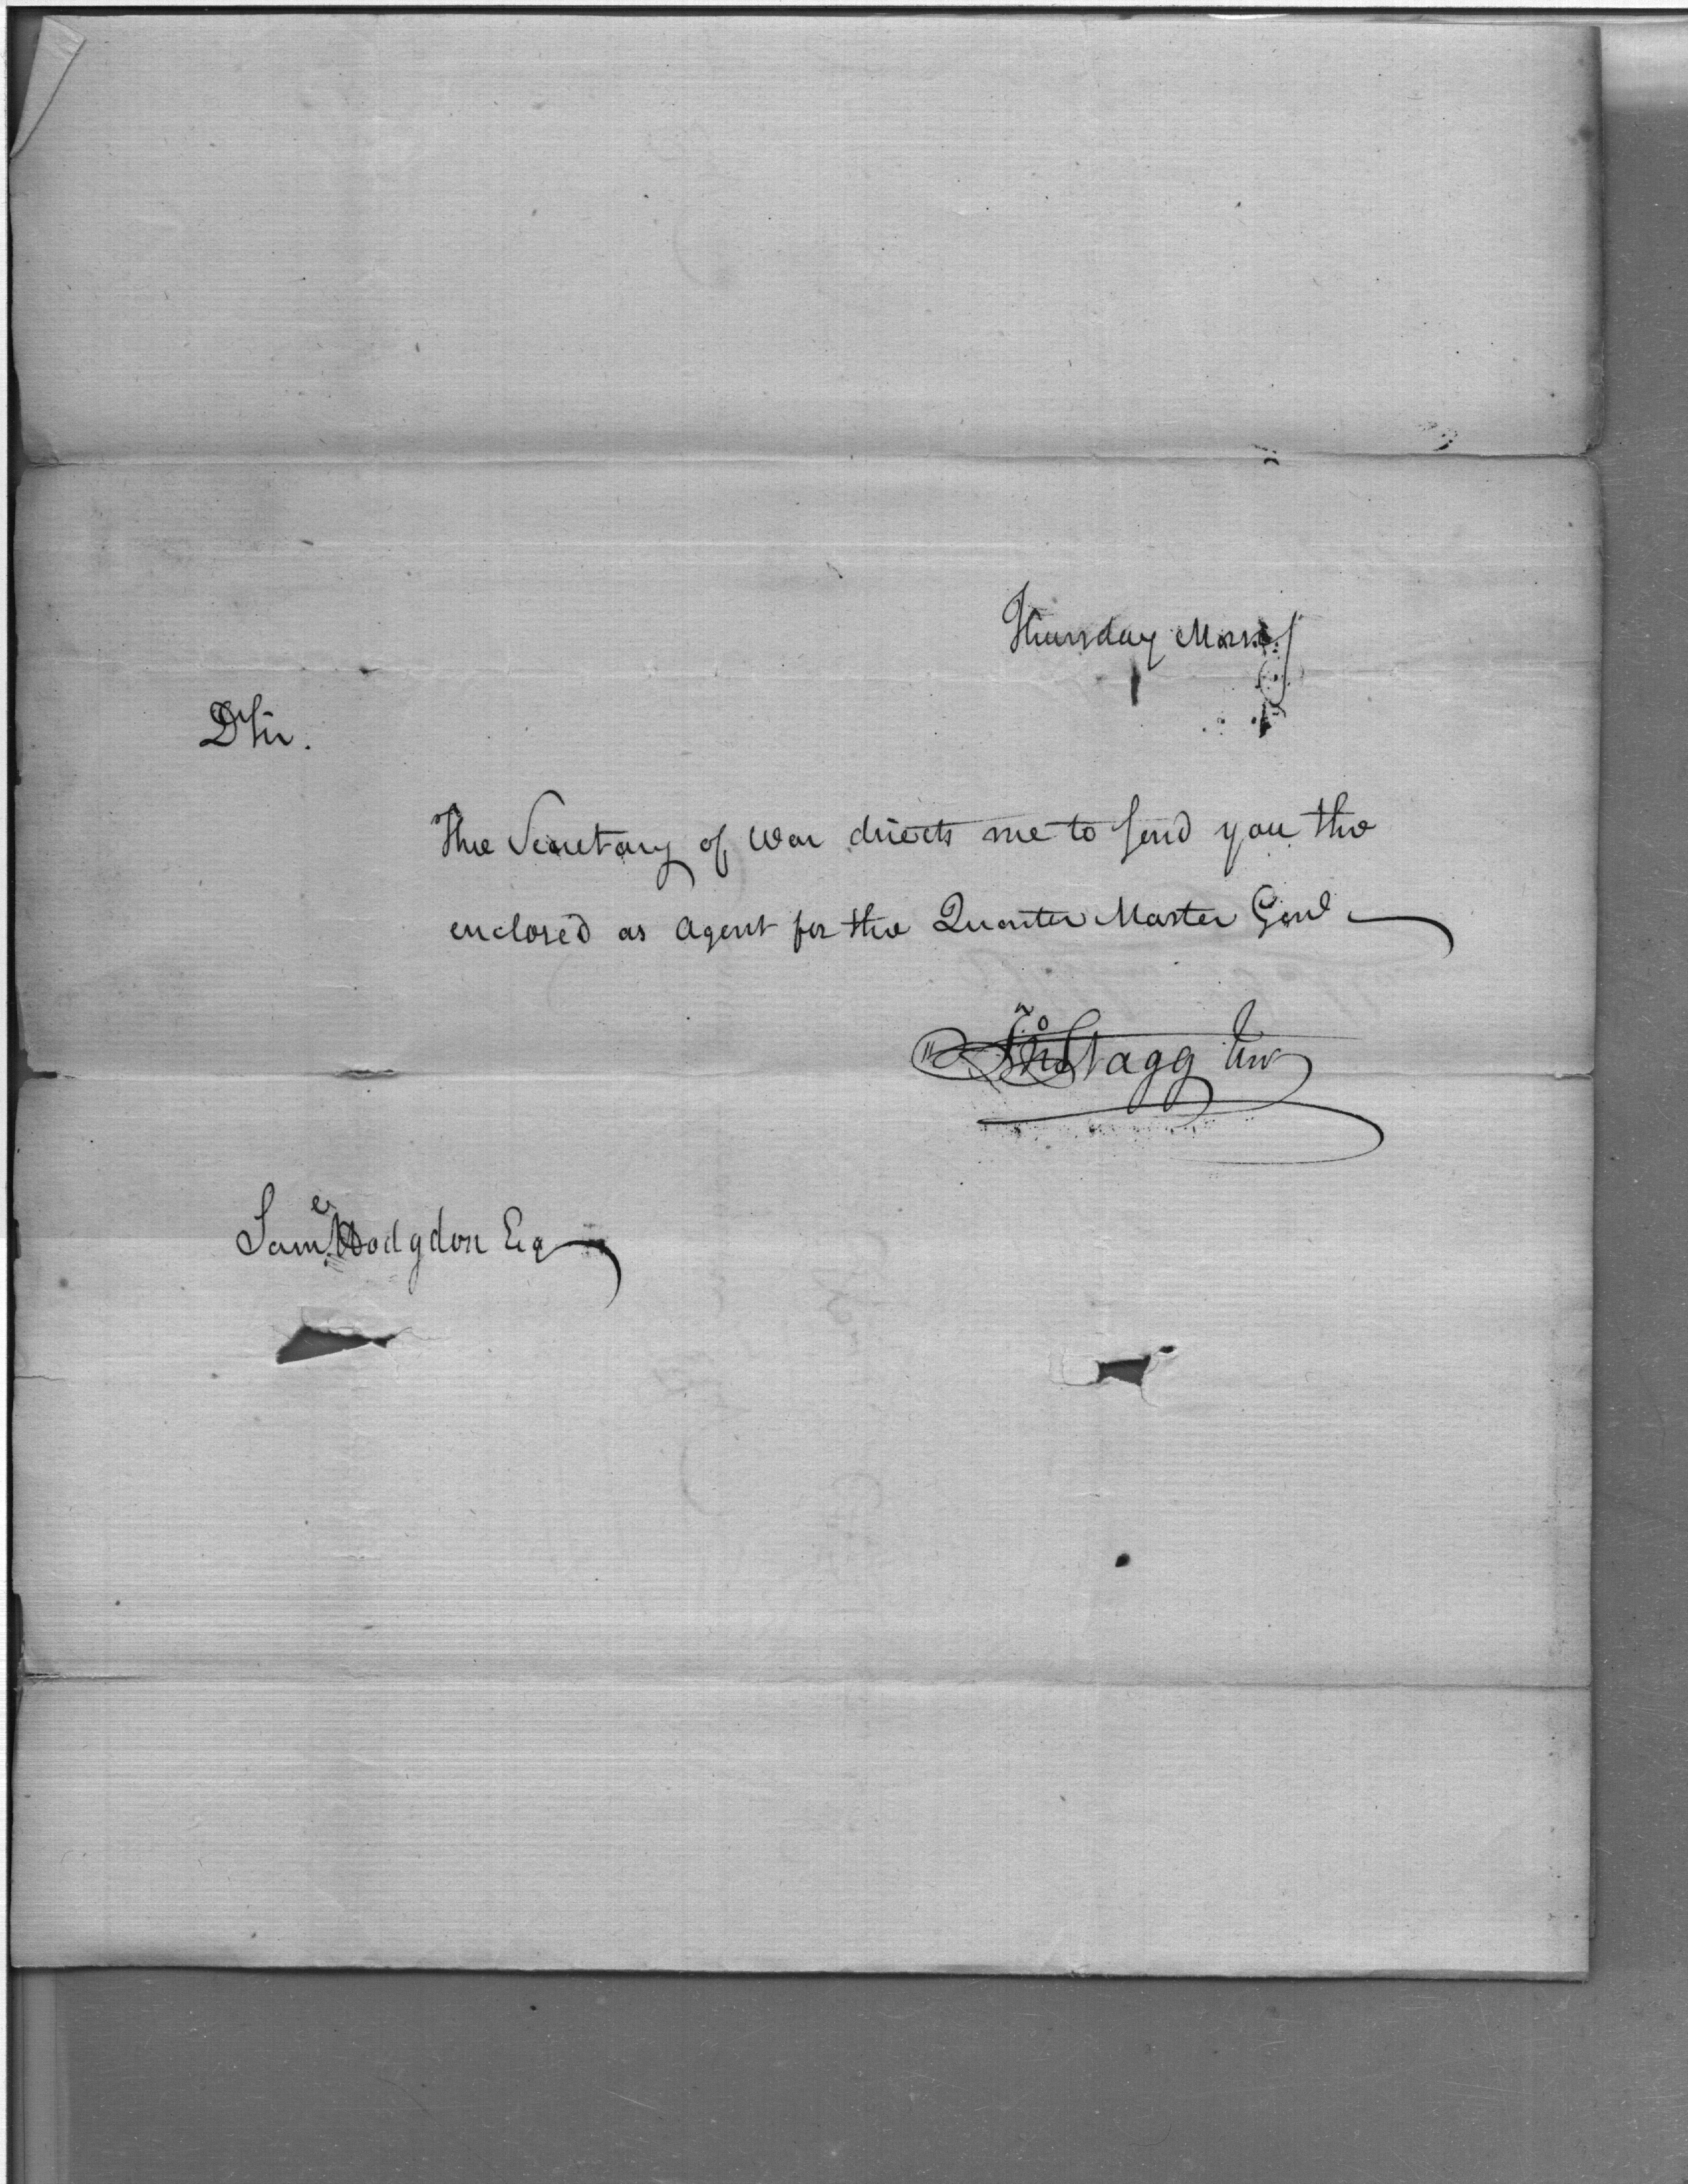 Thursday Morng
D Sir.
The Secretary of War directs me to send you the
enclosed as Agent for the Quarter Master Genl
Jno Stagg Junr
Saml Hodgdon Esq